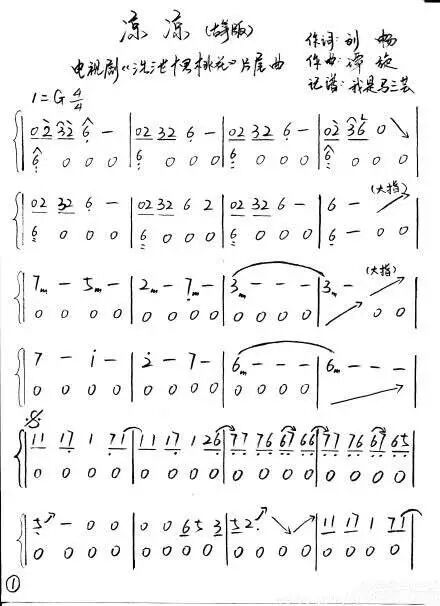 凉 凉 (古筝版)
作词: 刘 畅
电视剧《 十里桃花》片尾曲 作曲: 谭 旋
记谱: 我是马三芸
1=G 4/4
02 32 6 - | 02 32 6 - | 02 32 6 - | 02 36 0 ↘
6 0 0 0 | 6 0 0 0 | 6 0 0 0 | 6 0 0 0
(大指)
02 32 6 - | 02 32 6 2 | 02 32 6 - | 6 - ↗
6 0 0 0 | 6 0 0 0 | 6 0 0 0 | 6 - 0 0
(大指)
7m - 5m - | 2m - 7m - | 3m - - - | 3m - ↗
0 0 0 0 | 0 0 0 0 | 0 0 0 0 | ↗ 0 0
7 - i - | 2 - 7 - | 6m - - - | 6m - - -
0 0 0 0 | 0 0 0 0 | 0 0 0 0 | ↗
11 17 1 71 | 11 17 1 26 | 77 76 67 66 | 77 76 67 65
0 0 0 0 | 0 0 0 0 | 0 0 0 0 | 0 0 0 0
5 ↗ - 0 0 | 0 0 65 3 | 52 ↗ ↘ ↗ | 11 17 1 71
0 0 0 0 | 0 0 0 0 | 0 0 0 0 | 0 0 0 0
①